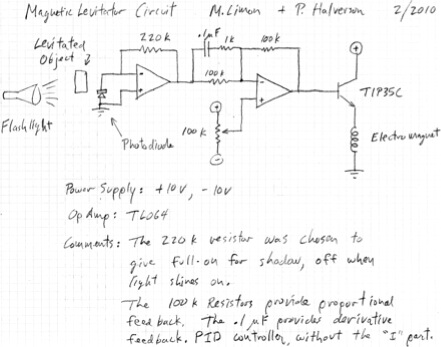 Magnetic Levitator Circuit M. Limon + P. Halverson 2/2010
Levitated
Object
220k
.1µF
1k
100k
100k
TIP35C
Flashlight
Photodiode
100k
Electromagnet
Power Supply: +10V, -10V
Op Amp: TL064
Comments: The 220k resistor was chosen to
give full-on for shadow, off when
light shines on.
The 100k Resistors provide proportional
feedback. The .1µF provides derivative
feedback. PID controller, without the "I" part.